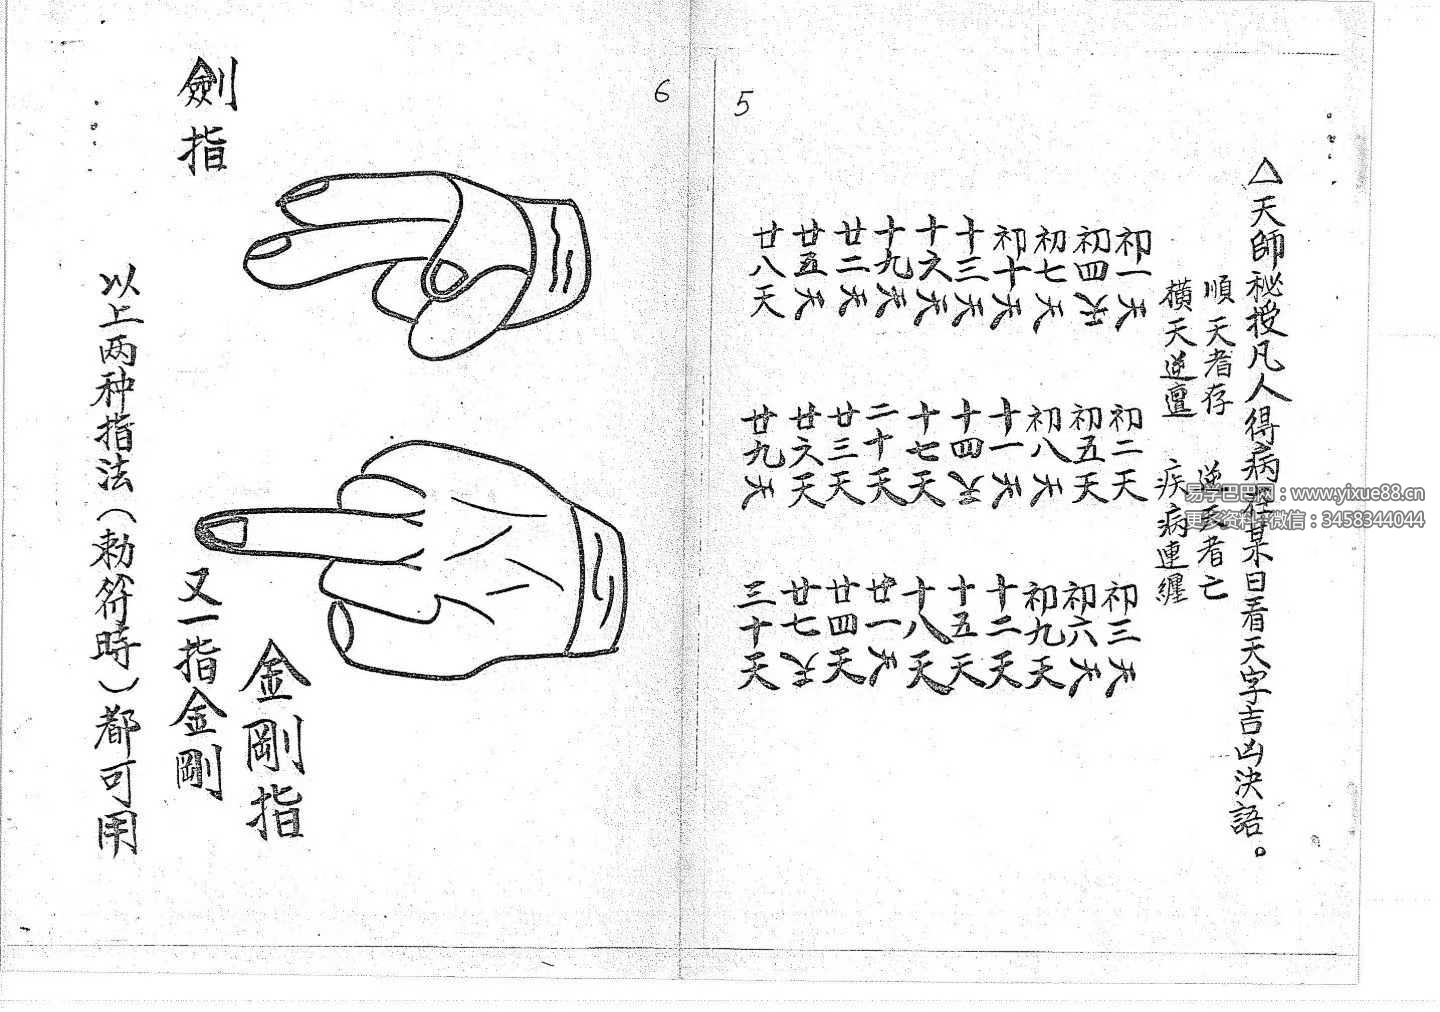 5
△天師祕授凡人得病在某日看天字吉凶決語。
順天者存 逆天者亡
橫天逆亶 疾病連纏
初一天 初二天 初三天
初四天 初五天 初六天
初七天 初八天 初九天
初十天 十一天 十二天
十三天 十四天 十五天
十六天 十七天 十八天
十九天 二十天 廿一天
廿二天 廿三天 廿四天
廿五天 廿六天 廿七天
廿八天 廿九天 三十天
6
劍指
金剛指
又一指金剛
以上两种指法(勅符時)都可用
易学巴巴网:www.yixue88.cn
更多资料+微信:3458344044